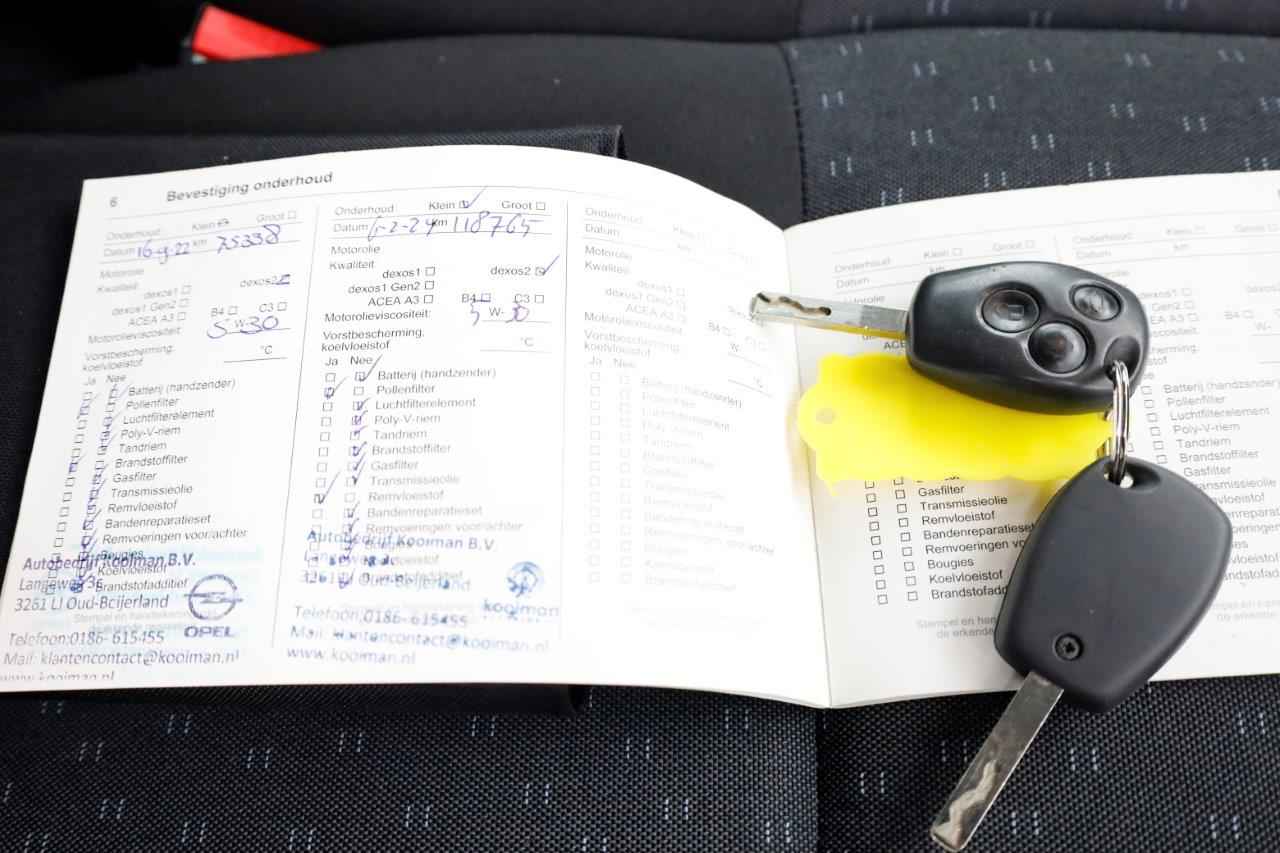 6 Bevestiging onderhoud
Onderhoud: Klein Groot
Datum 16-9-22 km 75338
Motorolie
Kwaliteit: dexos2
dexos1
dexos1 Gen2
ACEA A3 B4 C3
Motorolieviscositeit: 5 W-30
Vorstbescherming: koelvloeistof °C
Ja Nee
Batterij (handzender)
Pollenfilter
Luchtfilterelement
Poly-V-riem
Tandriem
Brandstoffilter
Gasfilter
Transmissieolie
Remvloeistof
Bandenreparatieset
Remvoeringen voor/achter
Bougies
Koelvloeistof
Brandstofadditief
Autobedrijf Kooiman B.V.
Langeweg 3c
3261 LJ Oud-Beijerland
OPEL
Telefoon:0186- 615455
Mail: klantencontact@kooiman.nl
www.kooiman.nl
Onderhoud: Klein Groot
Datum 6-2-24 km 118765
Motorolie
Kwaliteit:
dexos1 dexos2
dexos1 Gen2
ACEA A3 B4 C3
Motorolieviscositeit: 5 W- 30
Vorstbescherming:
koelvloeistof °C
Ja Nee
Batterij (handzender)
Pollenfilter
Luchtfilterelement
Poly-V-riem
Tandriem
Brandstoffilter
Gasfilter
Transmissieolie
Remvloeistof
Bandenreparatieset
Remvoeringen voor/achter
Bougies
Koelvloeistof
Brandstofadditief
Autobedrijf Kooiman B.V.
Langeweg 3c
3261 LJ Oud-Beijerland
kooiman
Telefoon:0186- 615455
Mail: klantencontact@kooiman.nl
www.kooiman.nl
Onderhoud: Klein Groot
Datum km
Motorolie
Kwaliteit:
dexos1
dexos1 Gen2
ACEA A3 B4
Motorolieviscositeit: W-
Vorstbescherming:
koelvloeistof °C
Ja Nee
Batterij (handzender)
Pollenfilter
Luchtfilterelement
Poly-V-riem
Tandriem
Brandstoffilter
Gasfilter
Transmissieolie
Remvloeistof
Bandenreparatieset
Remvoeringen voor/achter
Bougies
Koelvloeistof
Brandstofadditief
Onderhoud: Klein Groot
Datum km
Gasfilter
Transmissieolie
Remvloeistof
Bandenreparatieset
Remvoeringen vo
Bougies
Koelvloeistof
Brandstofadd
Stempel en han
de erkende
Onderhoud: Klein
Datum km
Batterij (handze
Pollenfilter
Luchtfilterelement
Poly-V-riem
Tandriem
Brandstoffilter
Gasfilter